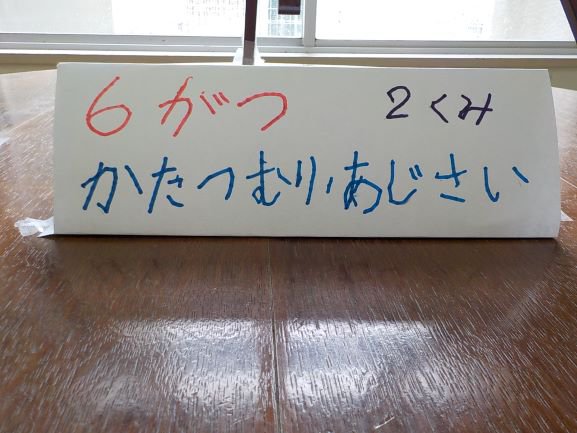 6がつ 2くみ
かたつむり、あじさい